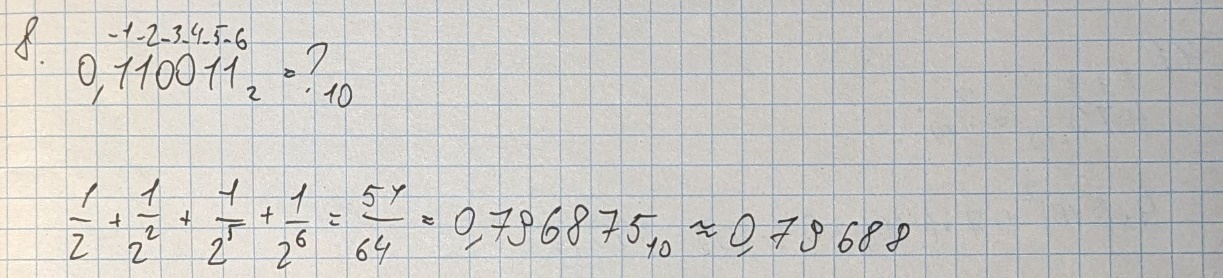 -1-2-3-4-5-6
8. 0,110011₂ = ?₁₀
1/2 + 1/2² + 1/2⁵ + 1/2⁶ = 51/64 = 0,796875₁₀ ≈ 0,79688